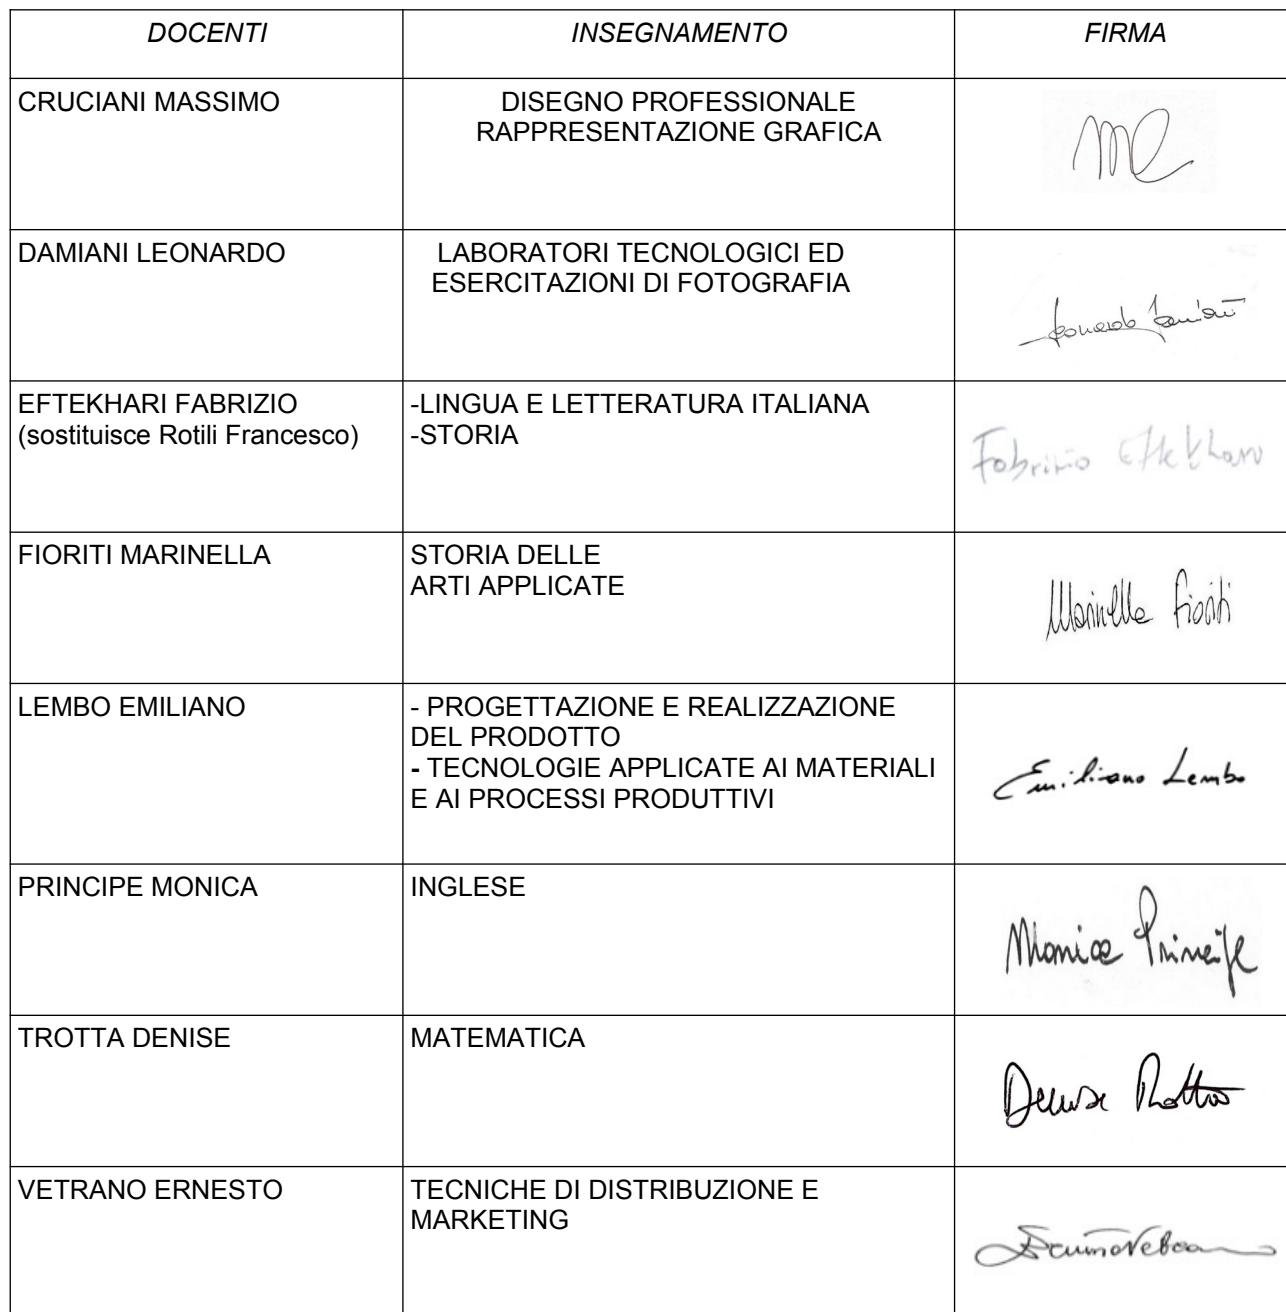 DOCENTI INSEGNAMENTO FIRMA
CRUCIANI MASSIMO DISEGNO PROFESSIONALE
RAPPRESENTAZIONE GRAFICA
DAMIANI LEONARDO LABORATORI TECNOLOGICI ED
ESERCITAZIONI DI FOTOGRAFIA
Leonardo Damiani
EFTEKHARI FABRIZIO -LINGUA E LETTERATURA ITALIANA
(sostituisce Rotili Francesco) -STORIA
Fabrizio Eftekhari
FIORITI MARINELLA STORIA DELLE
ARTI APPLICATE
Marinella Fioriti
LEMBO EMILIANO - PROGETTAZIONE E REALIZZAZIONE
DEL PRODOTTO
- TECNOLOGIE APPLICATE AI MATERIALI
E AI PROCESSI PRODUTTIVI
Emiliano Lembo
PRINCIPE MONICA INGLESE
Monica Principe
TROTTA DENISE MATEMATICA
Denise Trotta
VETRANO ERNESTO TECNICHE DI DISTRIBUZIONE E
MARKETING